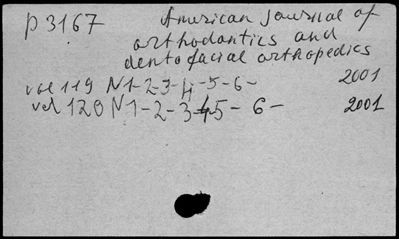 p 3167 American journal of
orthodontics and
dentofacial orthopedics
vol 119 N 1-2-3-4-5-6- 2001
vol 120 N 1-2-3-45- 6- 2001